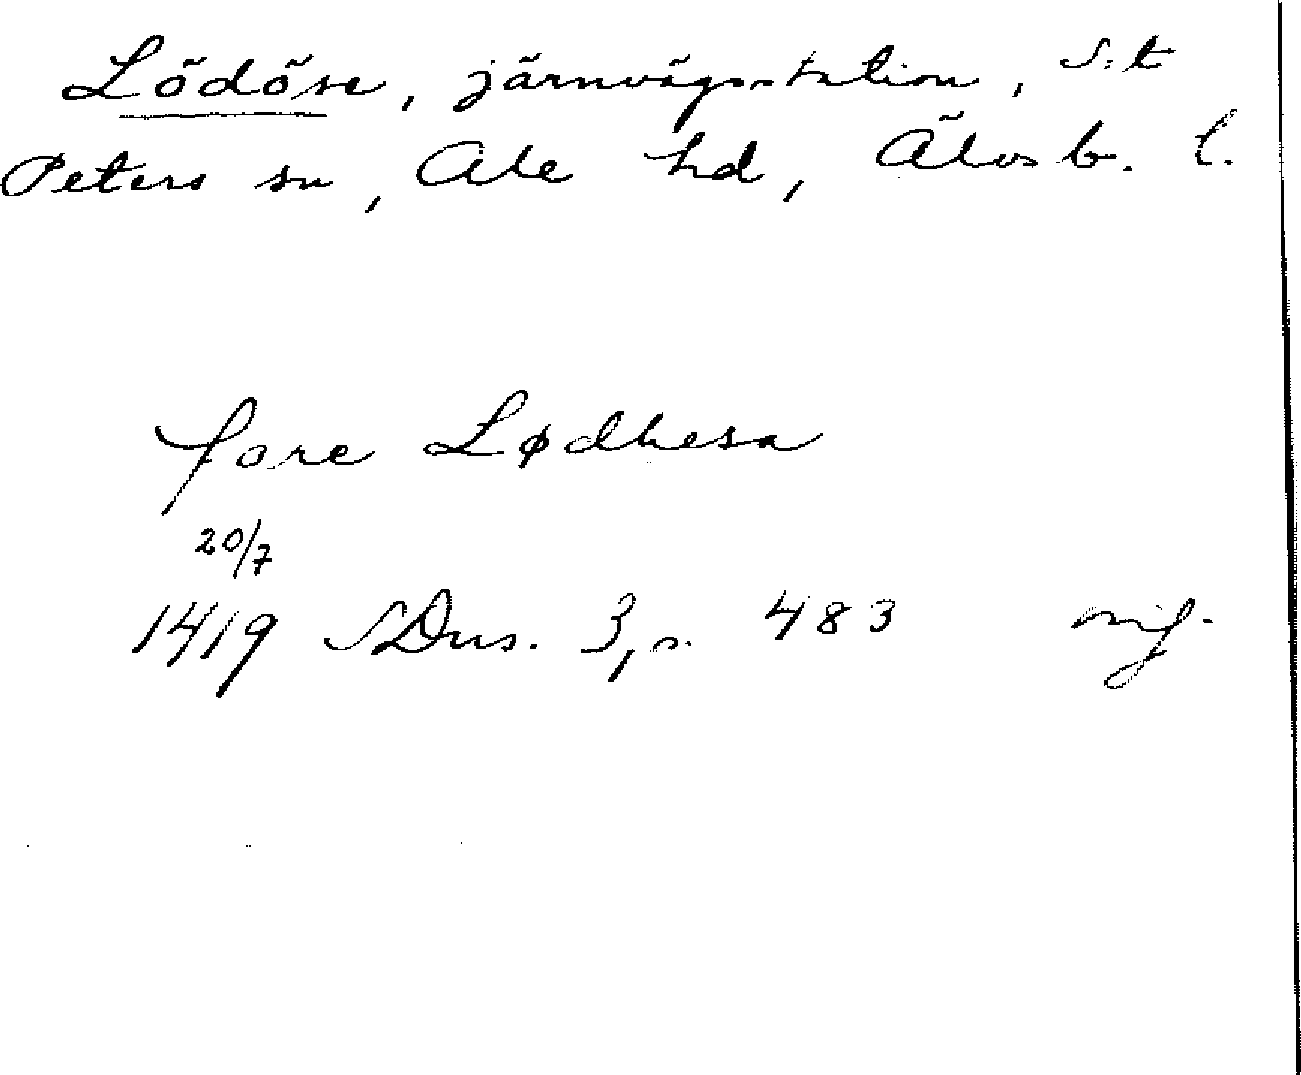 Lödöse, järnvägsstation, S:t
Peters sn, Ale hd, Älvsb. l.
fore Lødhesa
20/7
1419 SDns. 3, s. 483 orig.